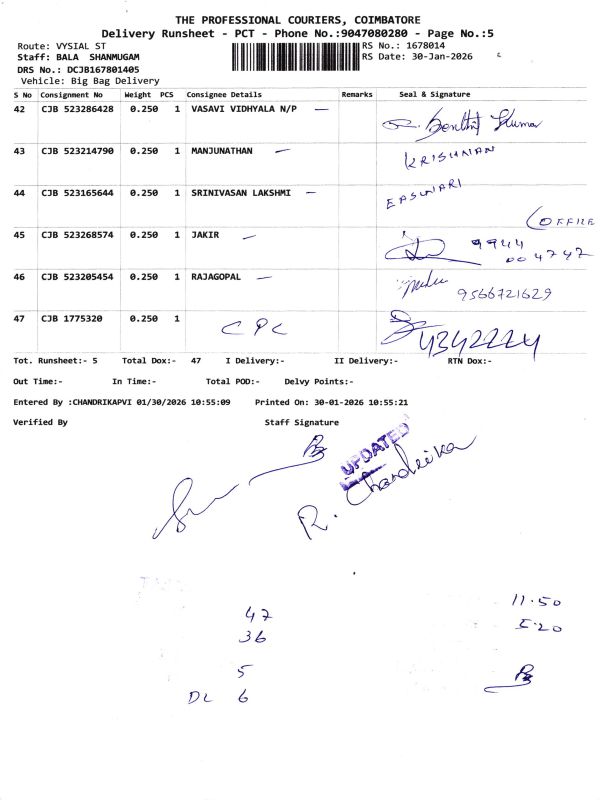 THE PROFESSIONAL COURIERS, COIMBATORE
Delivery Runsheet - PCT - Phone No.:9047080280 - Page No.:5
Route: VYSIAL ST RS No.: 1678014
Staff: BALA SHANMUGAM RS Date: 30-Jan-2026
DRS No.: DCJB167801405
Vehicle: Big Bag Delivery
S No Consignment No Weight PCS Consignee Details Remarks Seal & Signature
42 CJB 523286428 0.250 1 VASAVI VIDHYALA N/P —
43 CJB 523214790 0.250 1 MANJUNATHAN — KRISHNAN
44 CJB 523165644 0.250 1 SRINIVASAN LAKSHMI — EASWARI
(OFFICE
45 CJB 523268574 0.250 1 JAKIR — 9944
004747
46 CJB 523205454 0.250 1 RAJAGOPAL — 9566721629
47 CJB 1775320 0.250 1 CPC 4342224
Tot. Runsheet:- 5 Total Dox:- 47 I Delivery:- II Delivery:- RTN Dox:-
Out Time:- In Time:- Total POD:- Delvy Points:-
Entered By :CHANDRIKAPVI 01/30/2026 10:55:09 Printed On: 30-01-2026 10:55:21
Verified By Staff Signature
UPDATED
R. Chandrika
47 11.50
36 5.20
5
DL 6